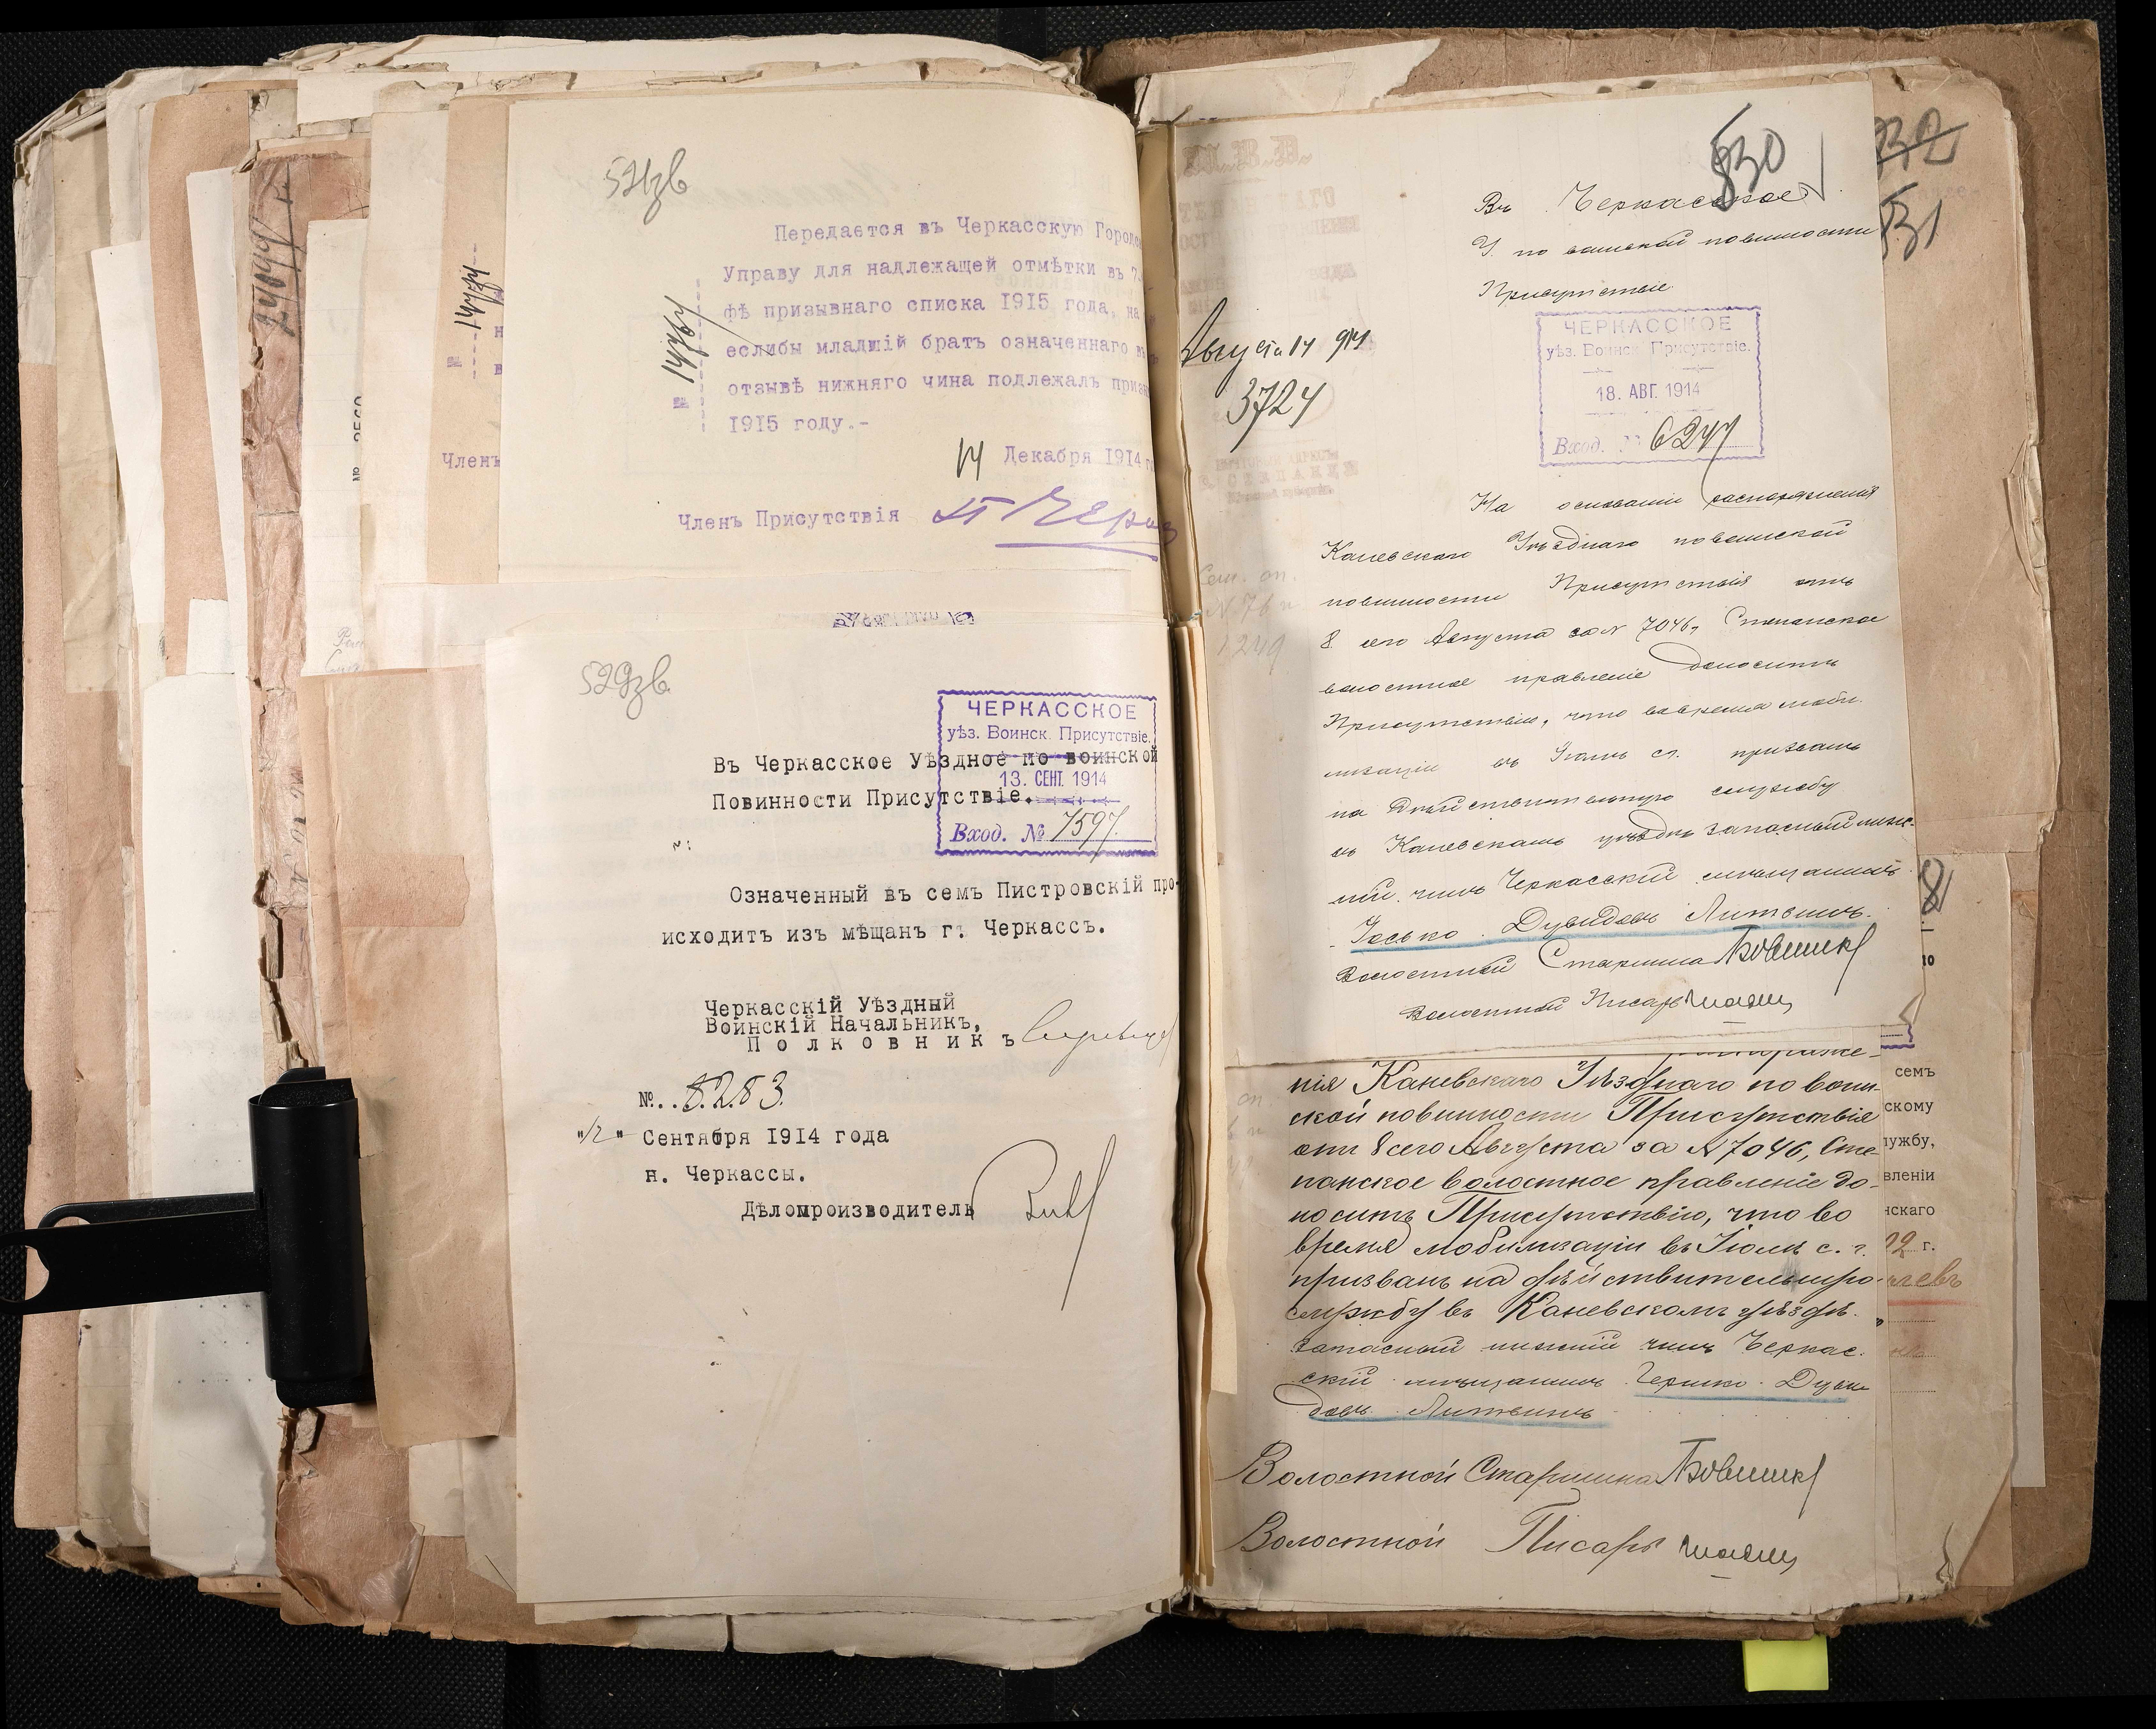 521зв
Передается въ Черкасскую Городск
Управу для надлежащей отмѣтки въ 7
фѣ призывнаго списка 1915 года, на
еслибы младшій братъ означеннаго въ
отзывѣ нижняго чина подлежалъ призы
1915 году.-
№ 14767
14 Декабря 1914 г
Членъ Присутствія
529зв.
ЧЕРКАССКОЕ
уѣз. Воинск. Присутствіе.
13. СЕНТ. 1914
Вход. № 7597.
Въ Черкасское Уѣздное по воинской
Повинности Присутствіе.
Означенный въ семъ Пистровскій про-
исходитъ изъ мѣщанъ г. Черкассъ.
Черкасскій Уѣздный
Воинскій Начальникъ,
Полковникъ
№.. 8283.
"12" Сентября 1914 года
н. Черкассы.
Дѣлопроизводитель
Членъ
24099
№
530
Въ Черкасское
У. по воинской повинности
Присутствіе
ЧЕРКАССКОЕ
уѣз. Воинск. Присутствіе.
18. АВГ. 1914
Вход. № 6247
Августа 14 914
3724
На основаніи распоряженія
Каневскаго Уѣзднаго по воинской
повинности Присутствія отъ
8 сего Августа за N 7046, Степанское
волостное правленіе доноситъ
Присутствію, что во время моби-
лизаціи въ Іюлѣ с.г. призванъ
на дѣйствительную службу
въ Каневскомъ уѣздѣ запасный ниж-
ній чинъ Черкасскій мѣщанинъ
Іосько Дувидовъ Литвинъ.
Волостной Старшина
Волостной Писарь
532
531
нія Каневскаго Уѣзднаго по воин-
ской повинности Присутствія
отъ 8 сего Августа за N 7046, Сте-
панское волостное правленіе до-
носитъ Присутствію, что во
время мобилизаціи въ Іюлѣ с. г.
призванъ на дѣйствительную
службу въ Каневскомъ уѣздѣ
запасный нижній чинъ Черкас-
скій мѣщанинъ Гершко Дуви
довъ Литвинъ
Волостной Старшина
Волостной Писарь
8
семъ
скому
лужбу,
вленіи
нскаго
г.